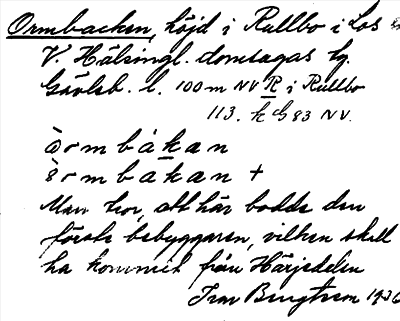 Ormbacken, höjd i Rullbo i Los
V. Hälsingl. domsagas tg.
Gävleb. l. 100 m NV R i Rullbo
113. k G 83 NV.
òrmbákan
òrmbákan +
Man tror, att här bodde den
förste bebyggaren, vilken skall
ha kommit från Härjedalen
Ivar Bengtsson 1936